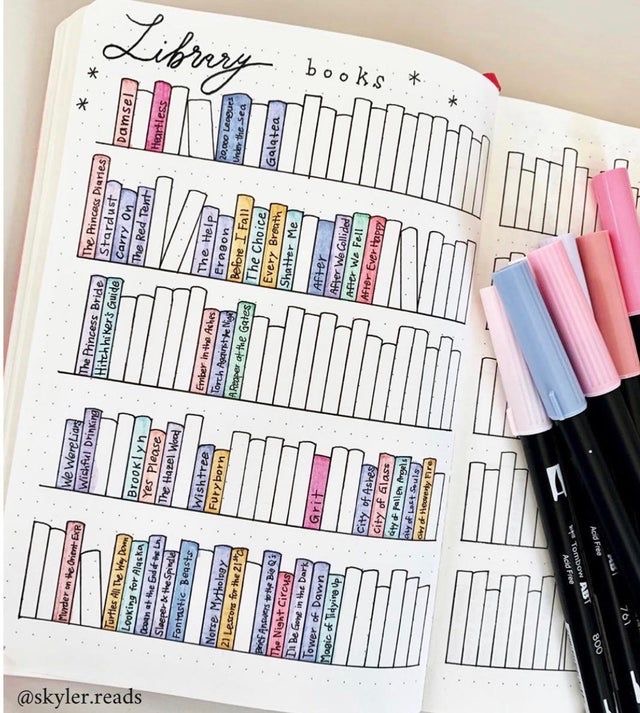 Library books
Damsel
Heartless
20,000 Leagues
Under the Sea
Galatea
The Princess Diaries
Stardust
Carry On
The Red Tent
The Help
Eragon
Before I Fall
The Choice
Every Breath
Shatter Me
After
After We Collided
After We Fell
After Ever Happy
The Princess Bride
Hitchhiker's Guide
Ember in the Ashes
Torch Against the Night
A Reaper at the Gates
We Were Liars
Wishful Drinking
Brooklyn
Yes Please
The Hazel Wood
Wishtree
Furyborn
Grit
City of Ashes
City of Glass
City of Fallen Angels
City of Lost Souls
City of Heavenly Fire
Murder on the Orient Exp.
Turtles All the Way Down
Looking for Alaska
Dawn at the End of the
Sleeper & the Spindle
Fantastic Beasts
Norse Mythology
21 Lessons for the 21st C
Brief Answers to the Big Q's
The Night Circus
I'll Be Gone in the Dark
Tower of Dawn
Magic of Tidying Up
Tombow ABT
Acid Free
Acid Free
800
761
@skyler.reads